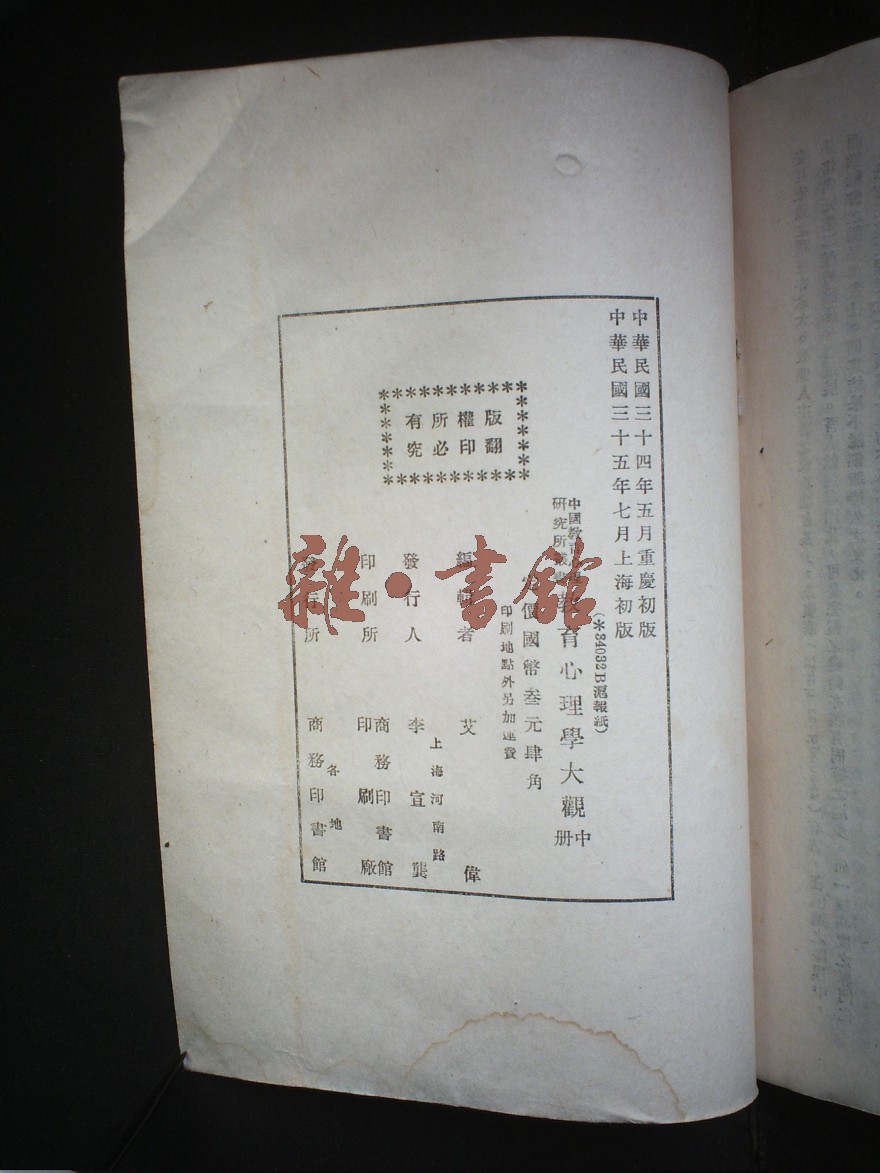 中華民國三十四年五月重慶初版
中華民國三十五年七月上海初版
(＊34032B滬報紙)
中國教育
研究所
教育心理學大觀 中冊
定價國幣叁元肆角
印刷地點外另加運費
版權所有
翻印必究
編輯者 艾偉
發行人 李宣龔
上海河南路
印刷所 商務印書館
印刷廠
發行所 商務印書館
各地
雜·書館